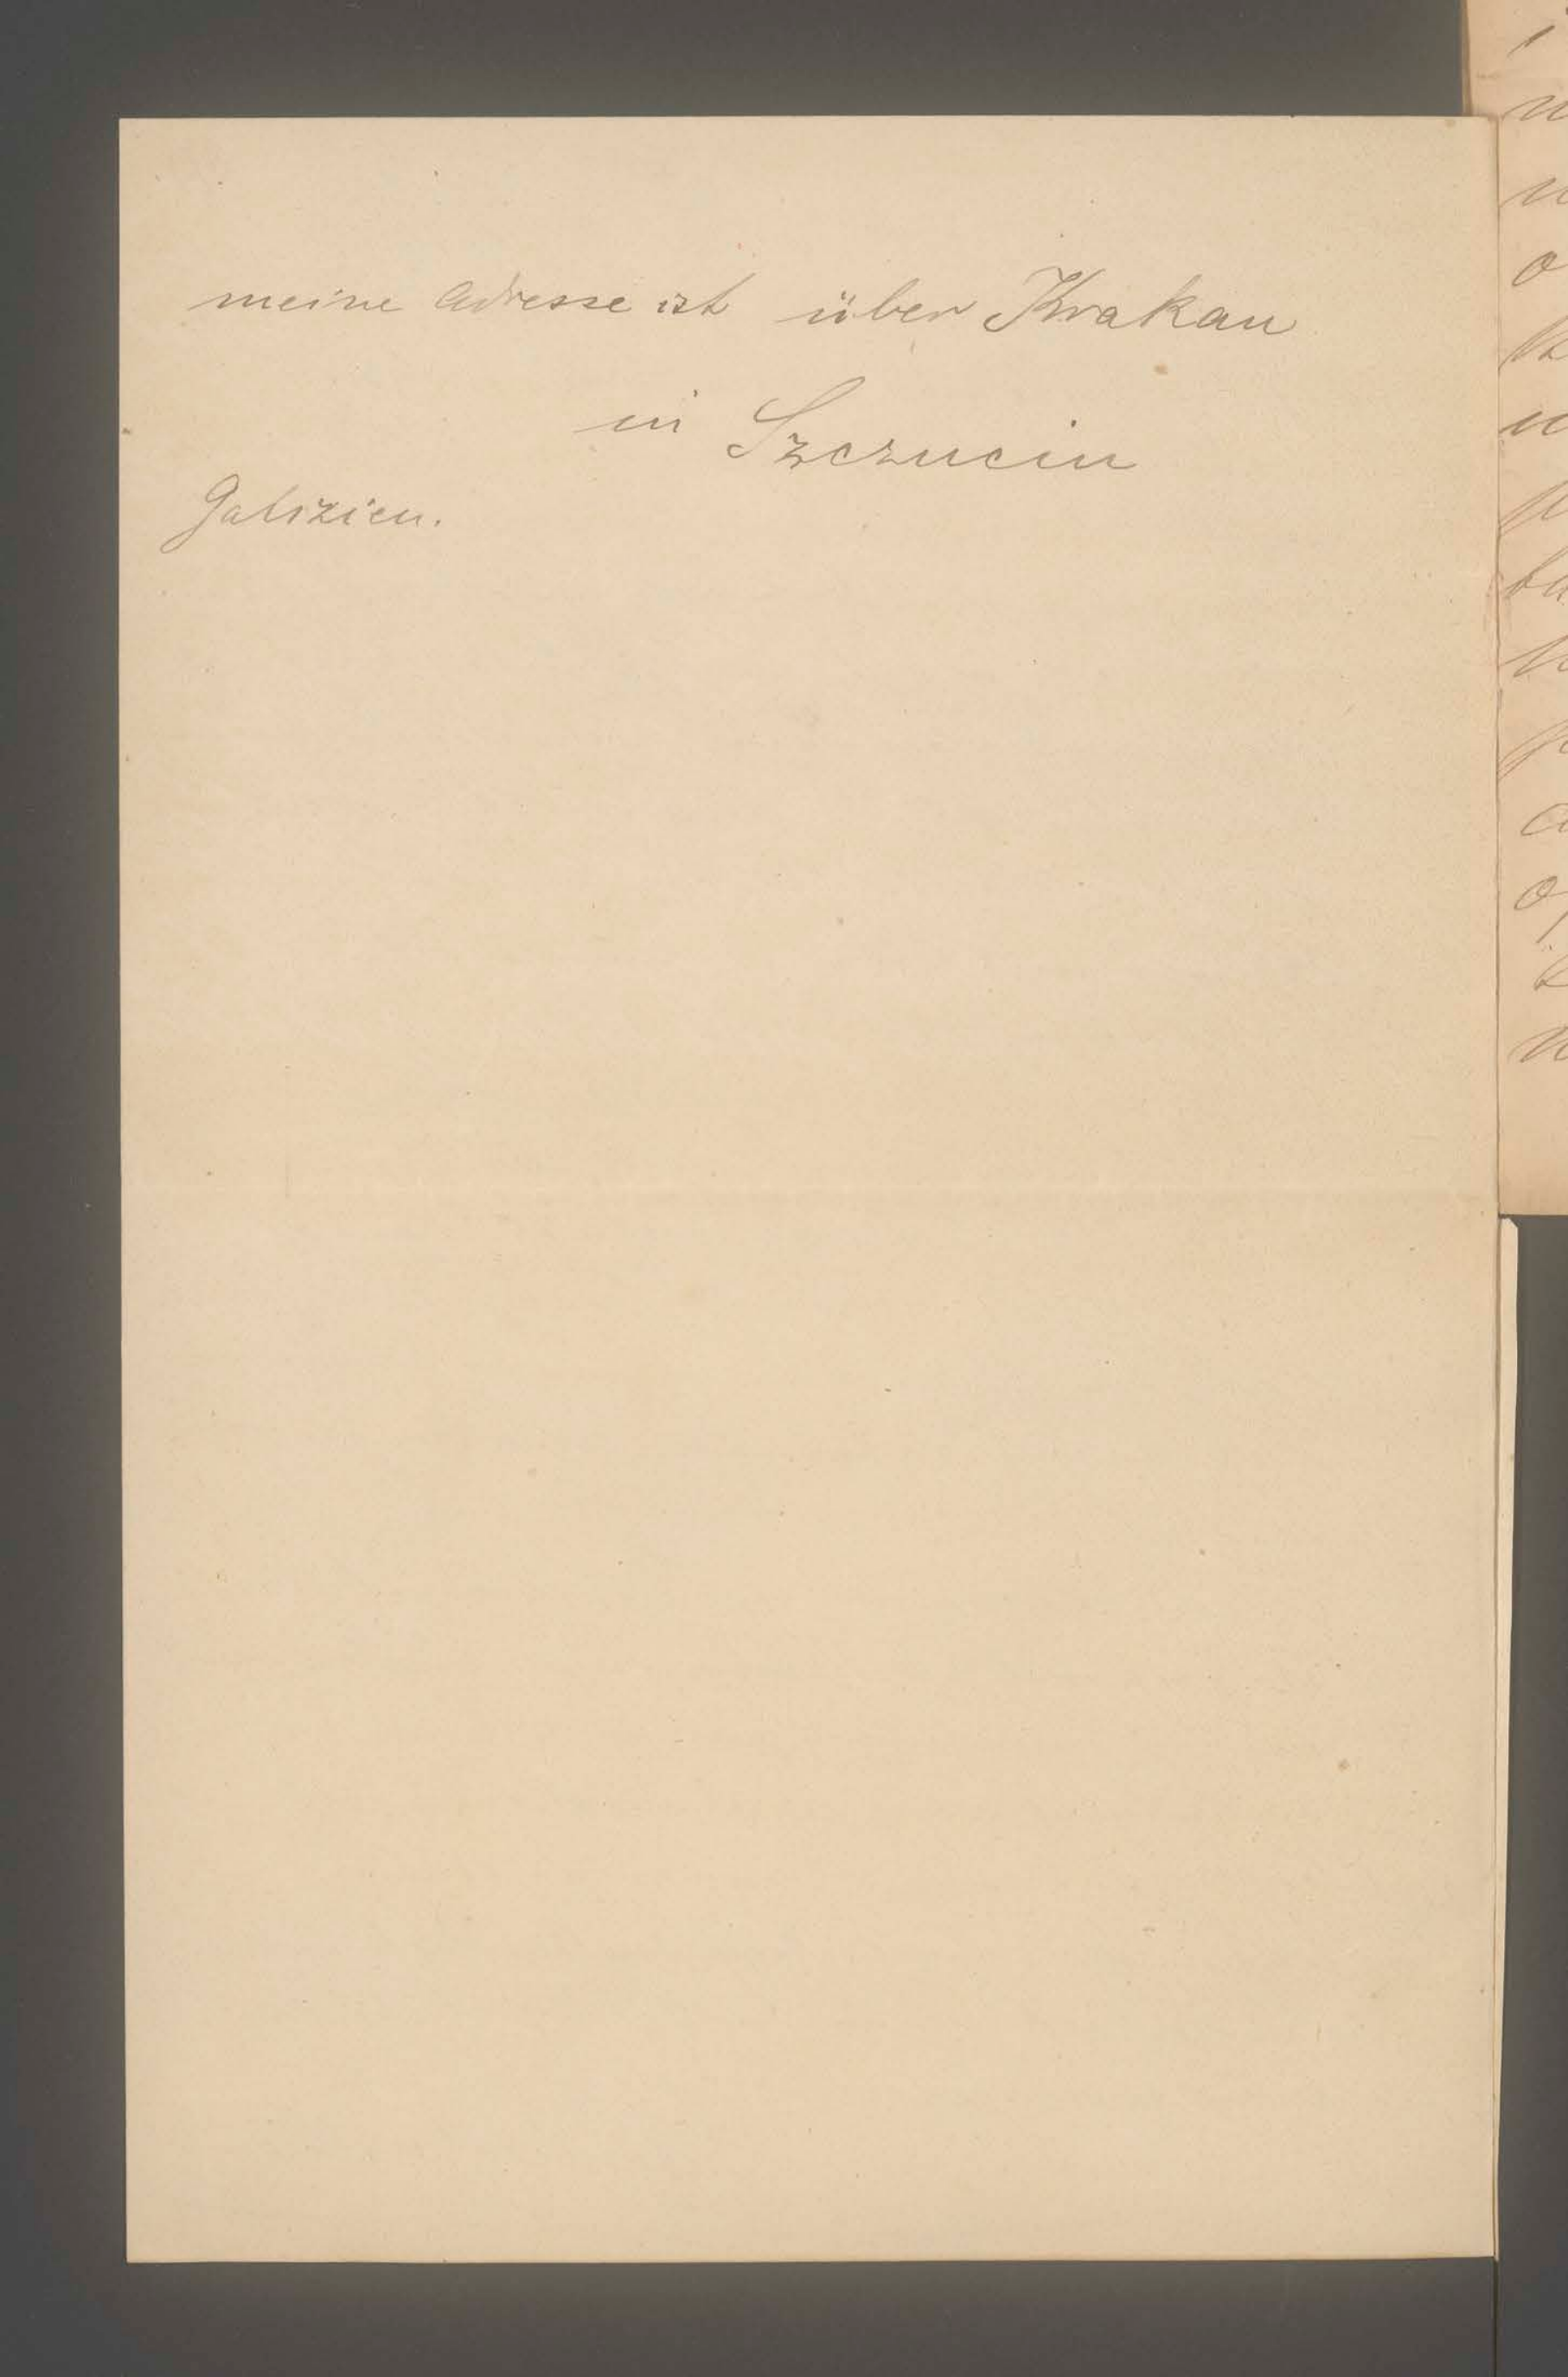 meine Adresse ist über Krakau
in Szczucin
Galizien.